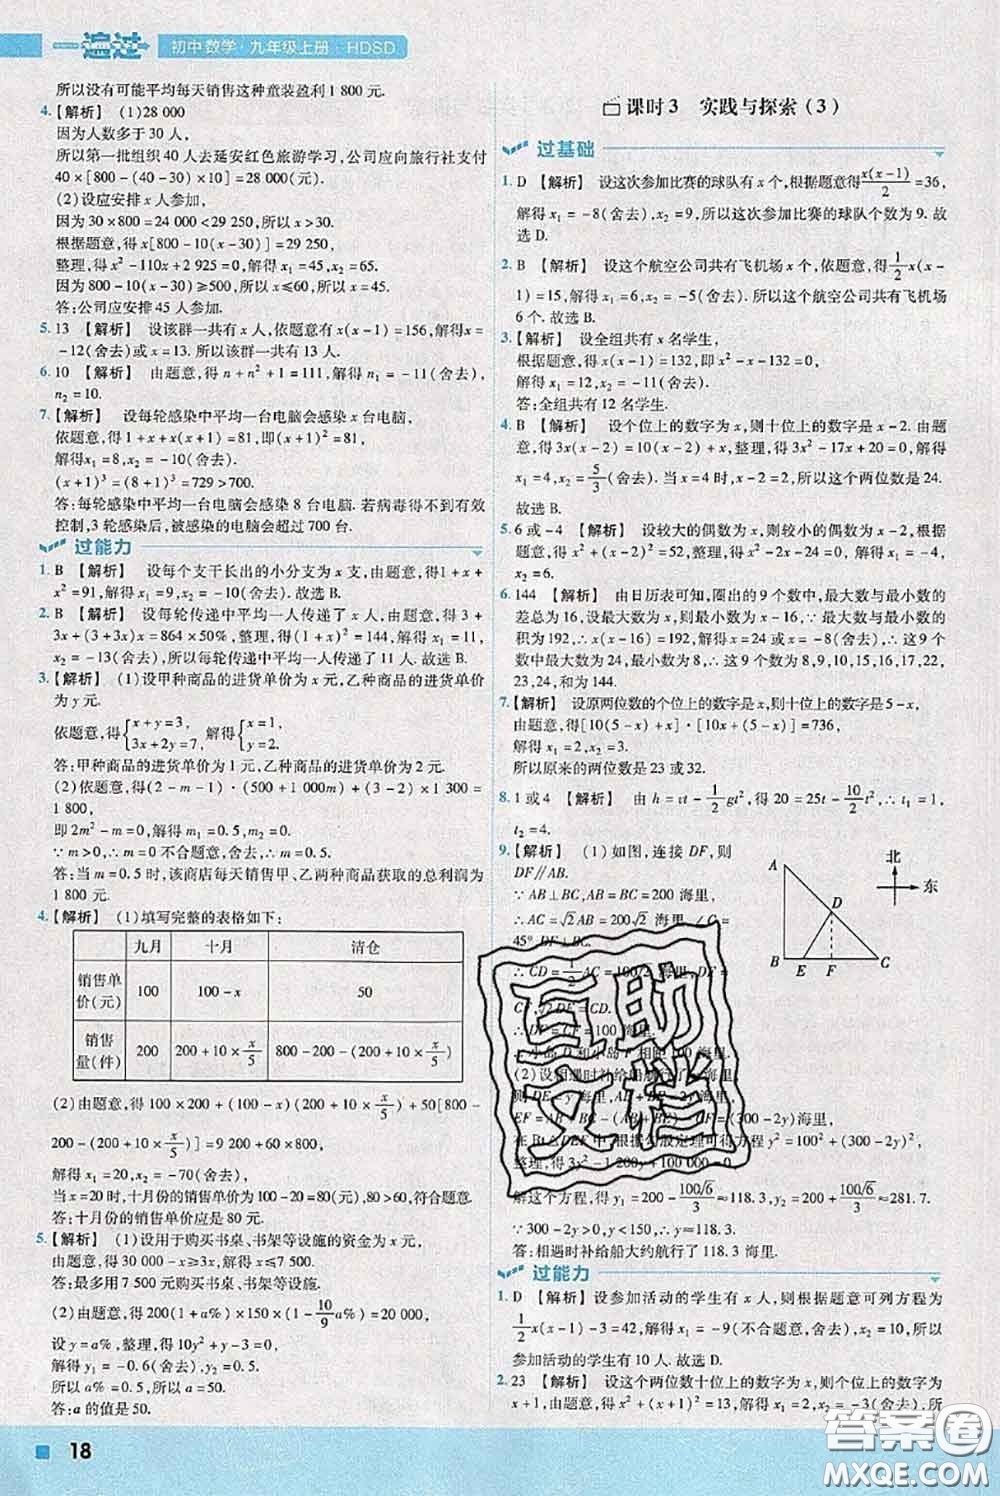 一遍过 初中数学·九年级上册·HDSD
所以没有可能平均每天销售这种童装盈利1 800元.
4.【解析】 (1)28 000
因为人数多于30人,
所以第一批组织40人去延安红色旅游学习,公司应向旅行社支付
40×[800-(40-30)×10]=28 000(元).
(2)设应安排x人参加,
因为30×800=24 000<29 250,所以x>30.
根据题意,得x[800-10(x-30)]=29 250,
整理,得x²-110x+2 925=0,解得x₁=45,x₂=65.
因为800-10(x-30)≥500,所以x≤60,所以x=45.
答:公司应安排45人参加.
5. 13 【解析】 设该群一共有x人,依题意有x(x-1)=156,解得x=
-12(舍去)或x=13.所以该群一共有13人.
6. 10 【解析】 由题意,得n+n²+1=111,解得n₁=-11(舍去),
n₂=10.
7.【解析】 设每轮感染中平均一台电脑会感染x台电脑,
依题意,得1+x+x(x+1)=81,即(x+1)²=81,
解得x₁=8,x₂=-10(舍去).
(x+1)³=(8+1)³=729>700.
答:每轮感染中平均一台电脑会感染8台电脑.若病毒得不到有效
控制,3轮感染后,被感染的电脑会超过700台.
过能力
1. B 【解析】 设每个支干长出的小分支为x支,由题意,得1+x+
x²=91,解得x₁=9,x₂=-10(舍去).故选B.
2. B 【解析】 设每轮传递中平均一人传递了x人,由题意,得3+
3x+(3+3x)x=864×50%,整理,得(1+x)²=144,解得x₁=11,
x₂=-13(舍去),所以每轮传递中平均一人传递了11人.故选B.
3.【解析】 (1)设甲种商品的进货单价为x元,乙种商品的进货单价
为y元.
依题意,得{x+y=3, 3x+2y=7, 解得{x=1, y=2.
答:甲种商品的进货单价为1元,乙种商品的进货单价为2元.
(2)依题意,得(2-m-1)·(500+1 000m)+(3-2)×1 300=
1 800,
即2m²-m=0,解得m₁=0.5,m₂=0.
∵m>0,∴m=0不合题意,舍去,∴m=0.5.
答:当m=0.5时,该商店每天销售甲、乙两种商品获取的总利润为
1 800元.
4.【解析】 (1)填写完整的表格如下:
九月 十月 清仓
销售单价(元) 100 100-x 50
销售量(件) 200 200+10×x/5 800-200-(200+10×x/5)
(2)由题意,得100×200+(100-x)(200+10×x/5)+50[800-
200-(200+10×x/5)]=9 200+60×800,
解得x₁=20,x₂=-70(舍去).
当x=20时,十月份的销售单价为100-20=80(元),80>60,符合题意.
答:十月份的销售单价应是80元.
5.【解析】 (1)设用于购买书桌、书架等设施的资金为x元,
由题意,得30 000-x≥3x,解得x≤7 500.
答:最多用7 500元购买书桌、书架等设施.
(2)由题意,得200(1+a%)×150×(1-10/9a%)=20 000,
设y=a%,整理,得10y²+y-3=0,
解得y₁=-0.6(舍去),y₂=0.5,
所以a%=0.5,所以a=50.
答:a的值是50.
18
课时3 实践与探索(3)
过基础
1. D 【解析】 设这次参加比赛的球队有x个,根据题意得x(x-1)/2=36,
解得x₁=-8(舍去),x₂=9,所以这次参加比赛的球队个数为9.故
选D.
2. B 【解析】 设这个航空公司共有飞机场x个,依题意,得1/2x(x
-1)=15,解得x₁=6,x₂=-5(舍去),所以这个航空公司共有飞机场
6个.故选B.
3.【解析】 设全组共有x名学生,
根据题意,得x(x-1)=132,即x²-x-132=0,
解得x₁=12,x₂=-11(舍去).
答:全组共有12名学生.
4. B 【解析】 设个位上的数字为x,则十位上的数字是x-2.由题
意,得3x(x-2)=10(x-2)+x,整理,得3x²-17x+20=0,解得
x₁=4,x₂=5/3(舍去).当x=4时,x-2=2,所以这个两位数是24.
故选B.
5. 6或-4 【解析】 设较大的偶数为x,则较小的偶数为x-2,根据
题意,得x²+(x-2)²=52,整理,得x²-2x-24=0,解得x₁=-4,
x₂=6.
6. 144 【解析】 由日历表可知,圈出的9个数中,最大数与最小数的
差总为16,设最大数为x,则最小数为x-16.∵最大数与最小数的
积为192,∴x(x-16)=192,解得x=24或x=-8(舍去),∴这9个
数中最大数为24,最小数为8,∴这9个数为8,9,10,15,16,17,22,
23,24,和为144.
7.【解析】 设原两位数的个位上的数字是x,则十位上的数字是5-x,
由题意,得[10(5-x)+x]·[10x+(5-x)]=736,
解得x₁=2,x₂=3.
所以原来的两位数是23或32.
8. 1或4 【解析】 由h=vt-1/2gt²,得20=25t-10/2t²,∴t₁=1,
t₂=4.
9.【解析】 (1)如图,连接DF,则
DF∥AB.
∵AB⊥BC,AB=BC=200海里,
∴AC=√2AB=200√2海里,∠C=
45°
∴CD=1/2AC=100√2海里,DF=
CF
DF=CF=100海里.
∴小岛D和小岛F相距100海里.
A B E F C D 北 东
(2)设相遇时补给船航行了 海里,
则DE=y海里,AB+BE=
EF=AB+BC-(AB+BE)-CF=(300-2y)海里,
在Rt△DEF中,根据勾股定理可得方程y²=100²+(300-2y)²,
整理,得3y²-1 200y+100 000=0,
解这个方程,得y₁=200-100√6/3≈118.3,y₂=200+100√6/3≈281.7.
∵300-2y>0,∴y<150,∴y≈118.3.
答:相遇时补给船大约航行了118.3海里.
过能力
1. D 【解析】 设参加活动的学生有x人,则根据题意可列方程为
1/2x(x-1)-3=42,解得x₁=-9(不合题意,舍去),x₂=10,所以
参加活动的学生有10人.故选D.
2. 23 【解析】 设这个两位数十位上的数字为x,则个位上的数字为
x+1,由题意,得x²+(x+1)²=13,解得x₁=2,x₂=-3(舍去),所
互助文档
答案圈
MXQE.COM